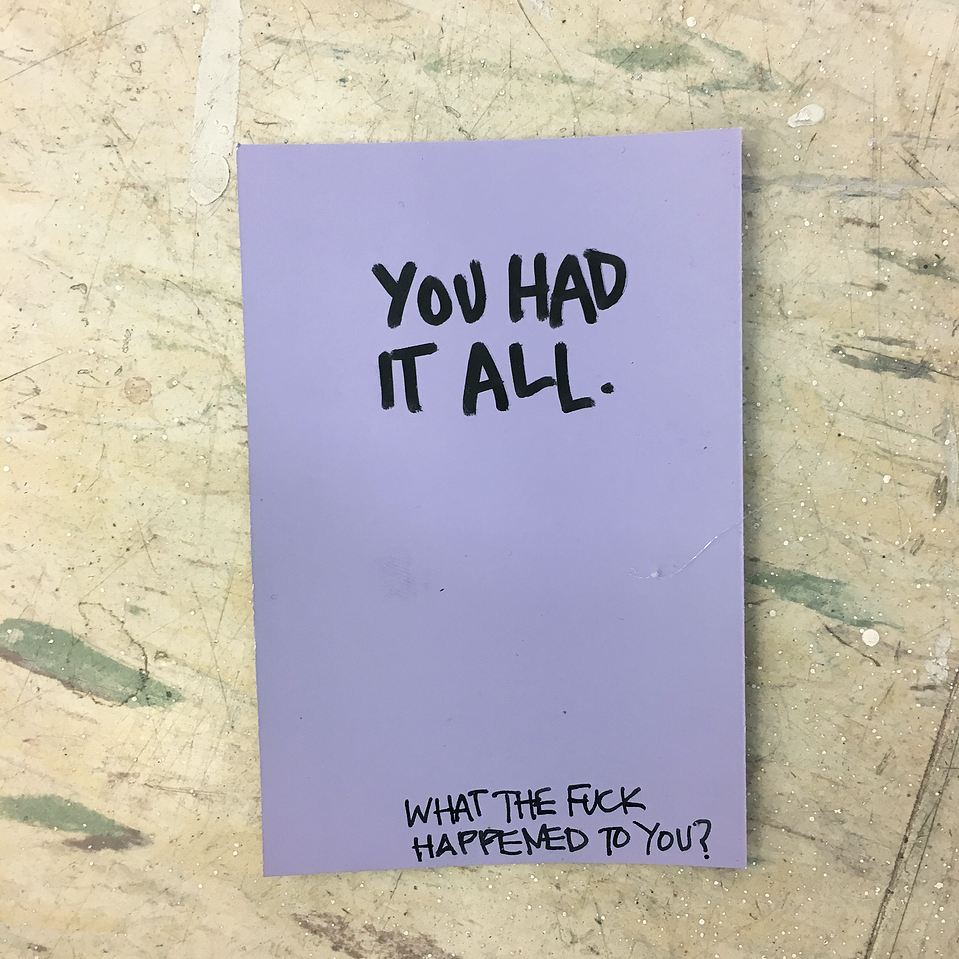 YOU HAD
IT ALL.
WHAT THE FUCK
HAPPENED TO YOU?